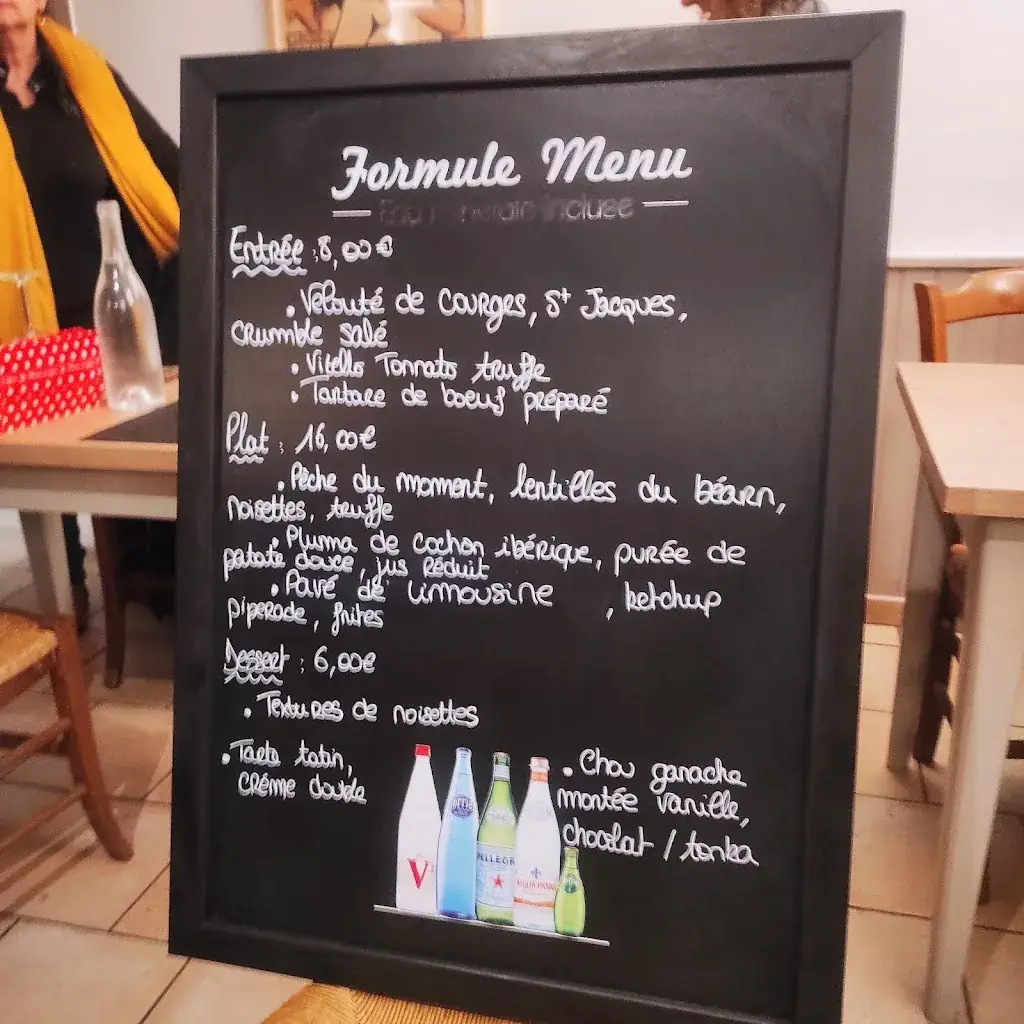 Formule Menu
Eau minérale incluse
Entrée : 8,00€
• Velouté de courges, St Jacques,
crumble salé
• Vitello Tonnato truffe
• Tartare de boeuf préparé
Plat : 16,00€
• Pêche du momment, lentilles du béarn,
noisettes, truffe
• Pluma de cochon ibérique, purée de
patate douce, jus réduit
• Pavé de limousine , ketchup
piperade, frites
Dessert : 6,00€
• Textures de noisettes
• Tarte tatin,
crème double
• Chou ganache
montée vanille,
chocolat / tonka
V
PELLEGR
ACQUA PANNA